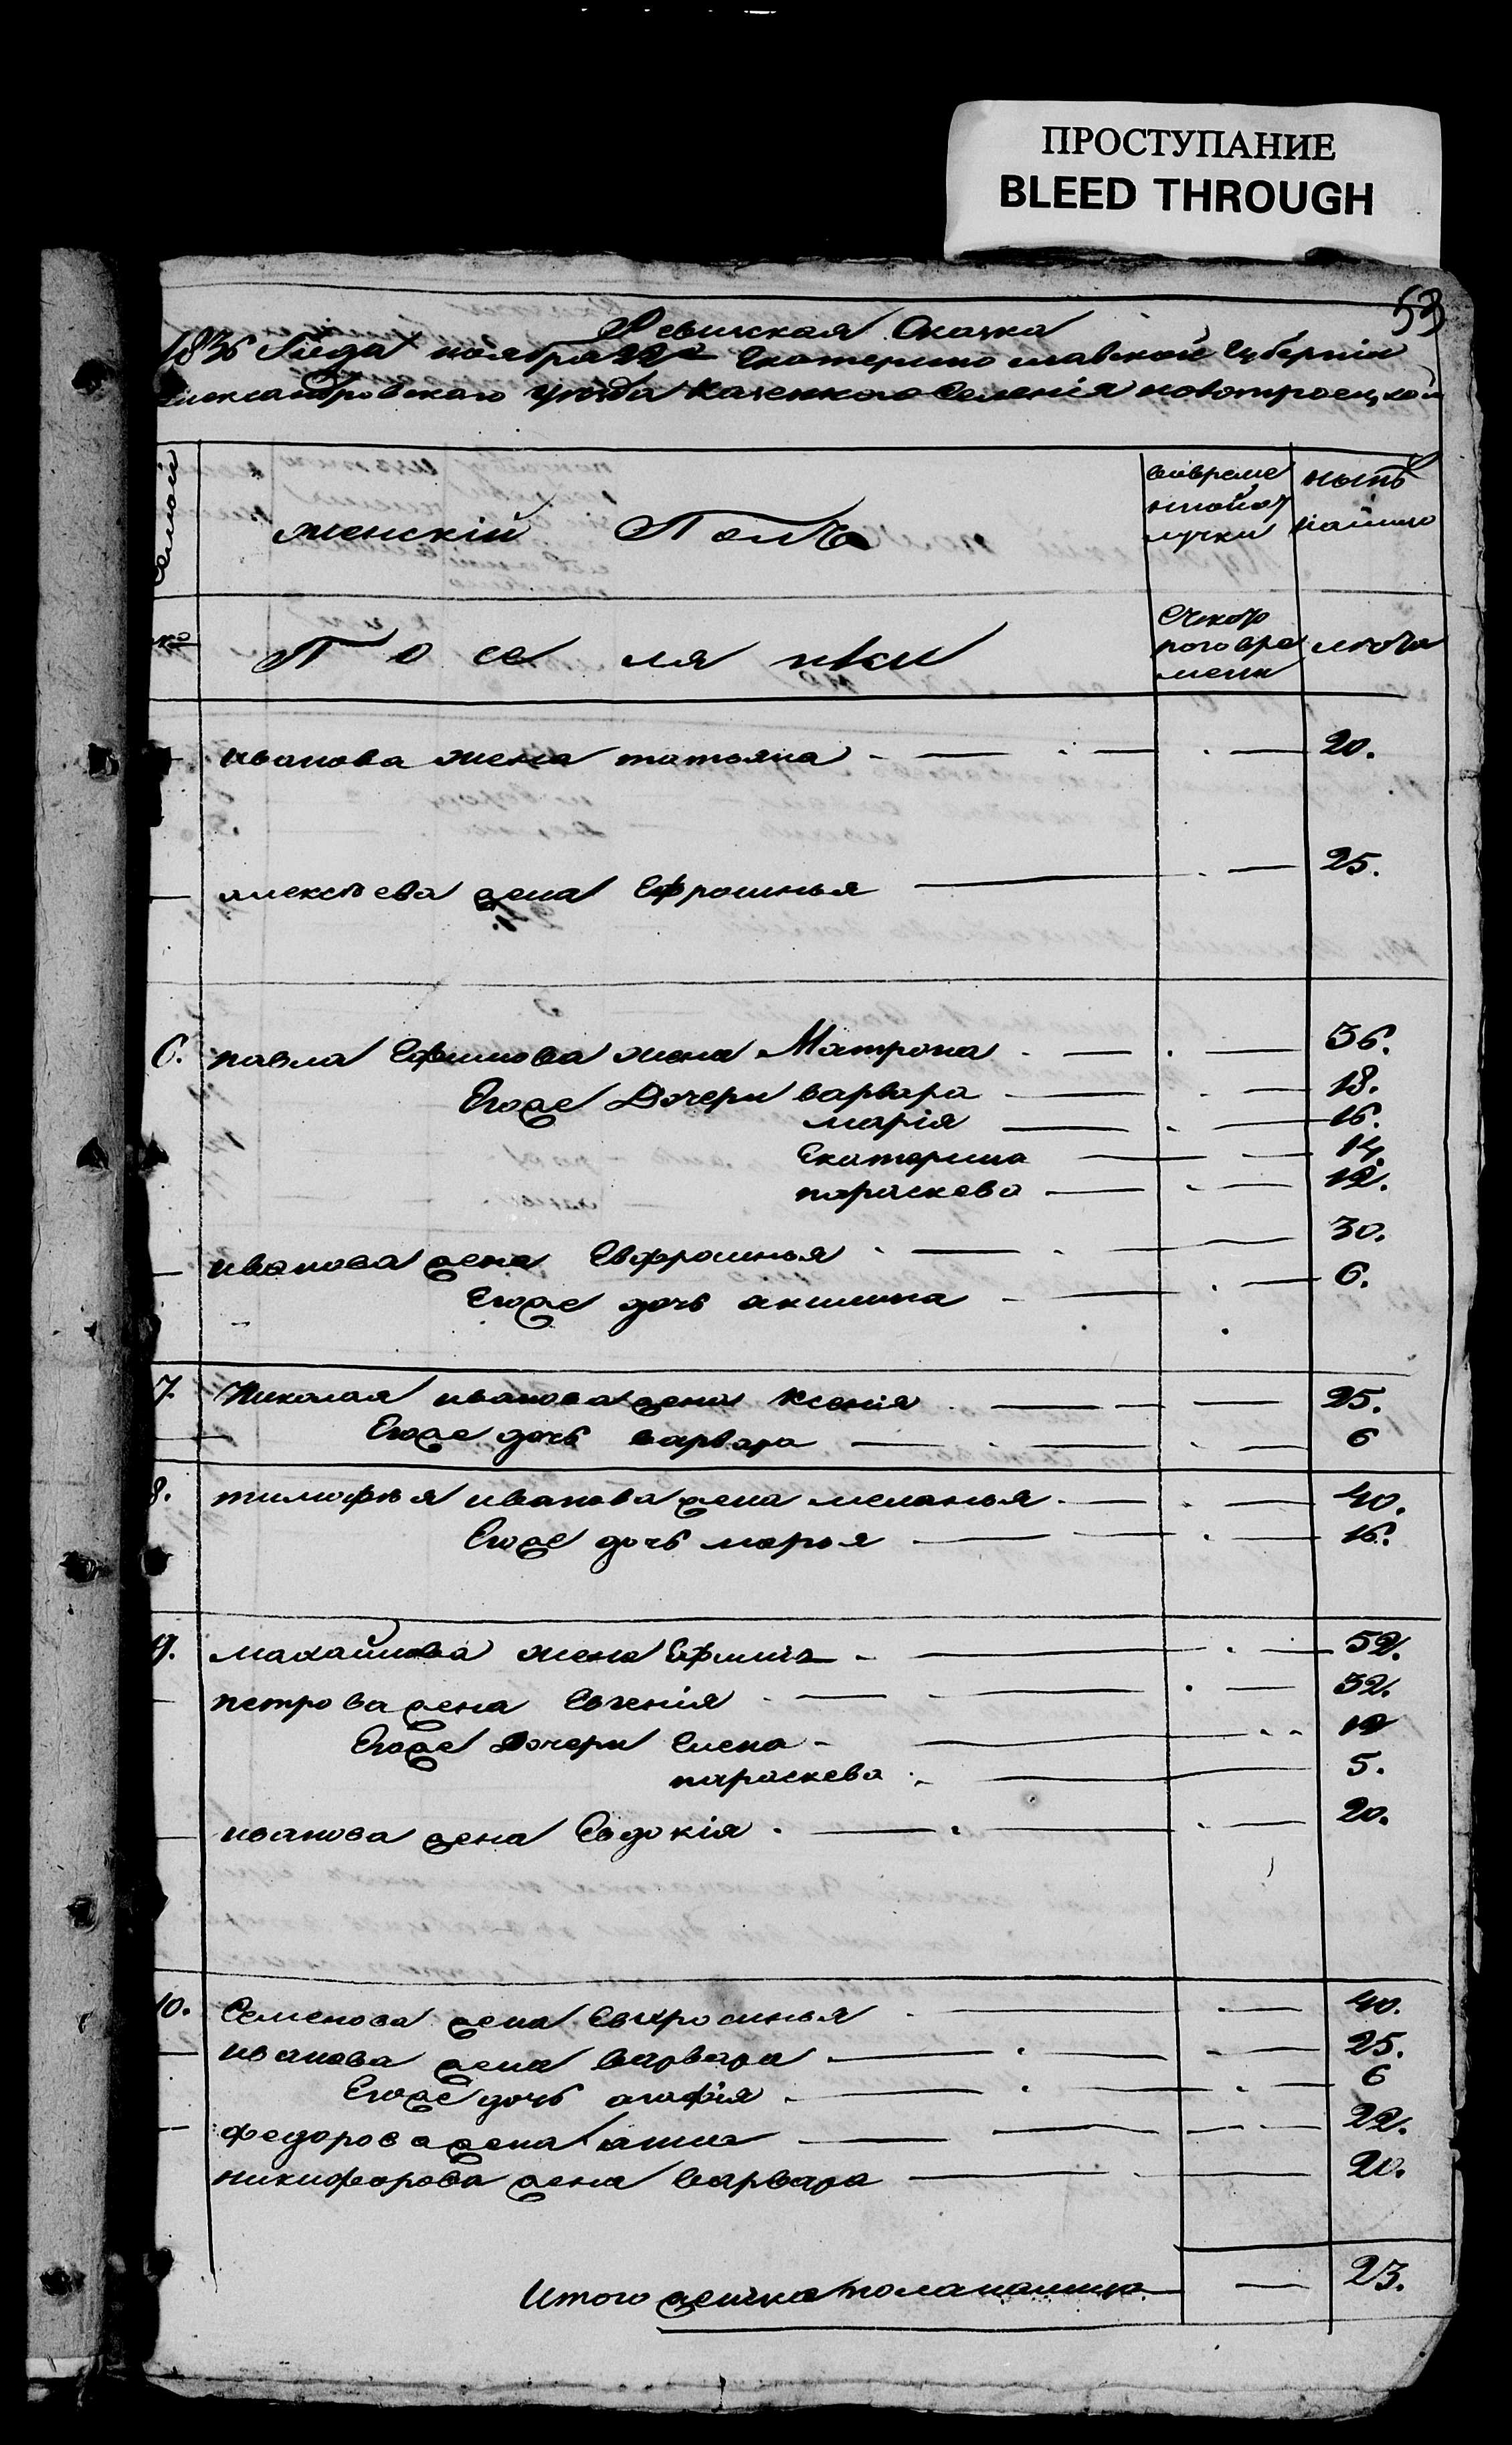 ПРОСТУПАНИЕ
BLEED THROUGH
53
Ревизская Сказка
1836 Года ноября 22 Екатеринославской Губернии
Александровского уезда Казенного Селения новотроецкой
семей
женскій Полъ
вовреме
нной от
лучки
нынѣ
налицо
№
Поселянки
Скотор
рого вре
мени
лѣта
иванова жена татьяна 20.
алексѣева жена Ефросинья 25.
6. павла Ефимова жена Матрона 36.
Егоже Дочери варвара 18.
марія 16.
Екатерина 14.
параскева 12.
иванова жена Евфросинья 30.
Егоже дочь акилина 6.
7. Николая иванова жена Ксенія 25.
Егоже дочь варвара 6
8. тимофѣя иванова жена меланья 40.
Егоже дочь марья 16.
9. жена 52.
петрова жена Евгенія 32.
Егоже Дочери Елена 12
параскева 5.
иванова жена Евдокія 20.
10. Семенова жена Евфросинья 40.
иванова жена варвара 25.
Егоже дочь агафія 6
федорова жена анна 22.
никифорова жена варвара 20.
Итого женска пола налицо 23.